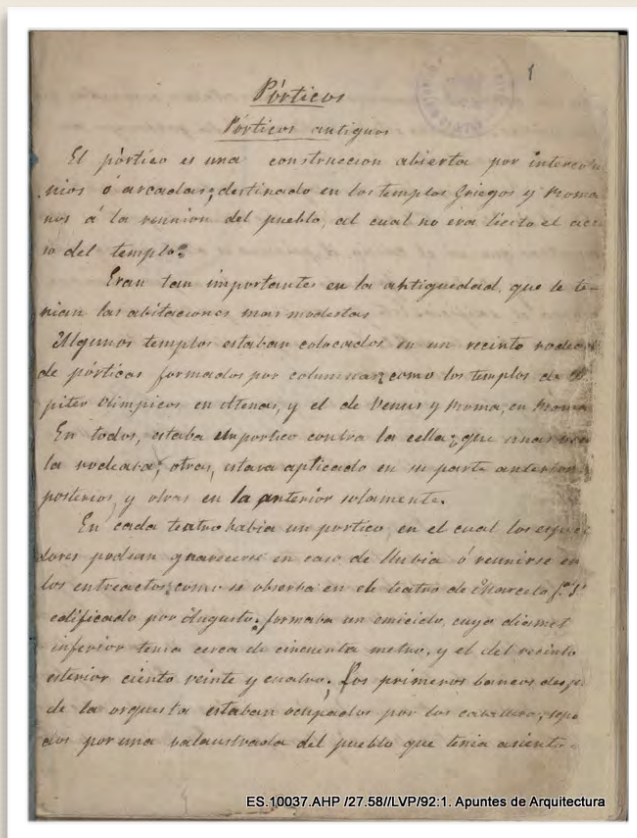 1
Pórticos
Pórticos antiguos
El pórtico es una construccion abierta por intercolu
nios ó arcadas; destinado en los templos Griegos y Roma
nos á la reunion del pueblo, al cual no era licito el acce
so del templo.
Eran tan importantes en la antiguedad, que le te-
nian las abitaciones mas modestas
Algunos templos estaban colocados en un recinto rodea
de pórticos formados por columnas; como los templos de
piter Olimpicos en Atenas, y el de Venus y Roma, en Roma
En todos, estaba un portico contra la cella; que unas
la rodeaba; otras, estava aplicado en su parte anterior
posterior, y otras en la anterior solamente.
En cada teatro habia un portico, en el cual los espec
dores podian guarecerse en caso de llubia ó reunirse en
los entreactos; como se observa en el teatro de Marcelo
edificado por Augusto. formaba un emiciclo, cuyo diamet
inferior tenia cerca de cincuenta metros, y el del recinto
esterior ciento veinte y cuatro. Los primeros bancos despu
de la orquesta estaban ocupados por los caballeros; sepa
dos por una balaustrada del pueblo que tenia asiento
ES.10037.AHP /27.58//LVP/92:1. Apuntes de Arquitectura